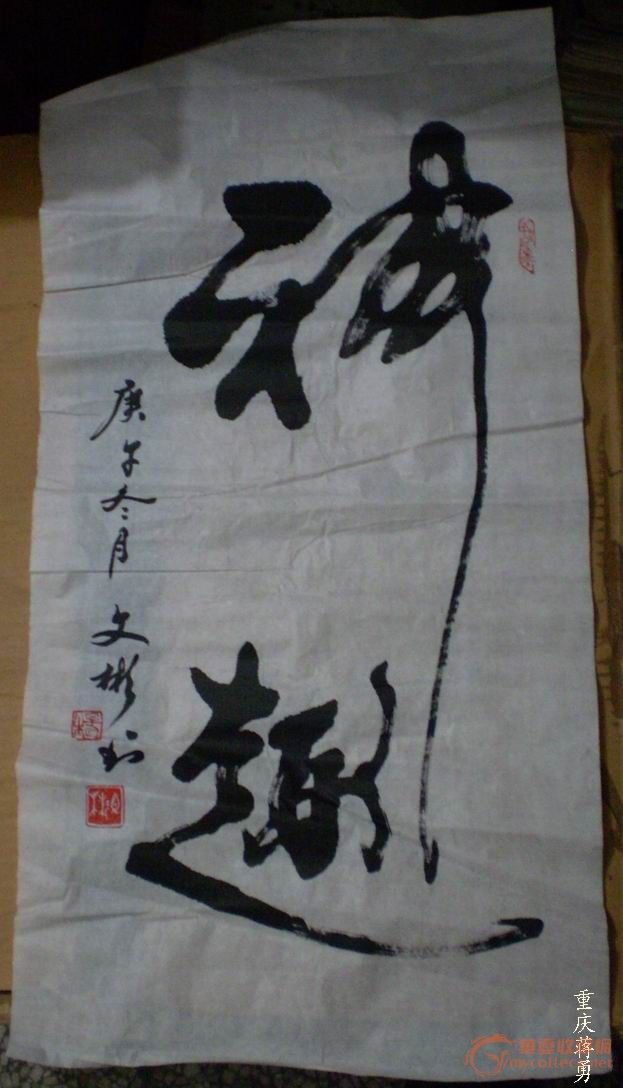 神趣
庚午冬月 文彬书
重庆蒋勇
華夏收藏网
mycollect.net